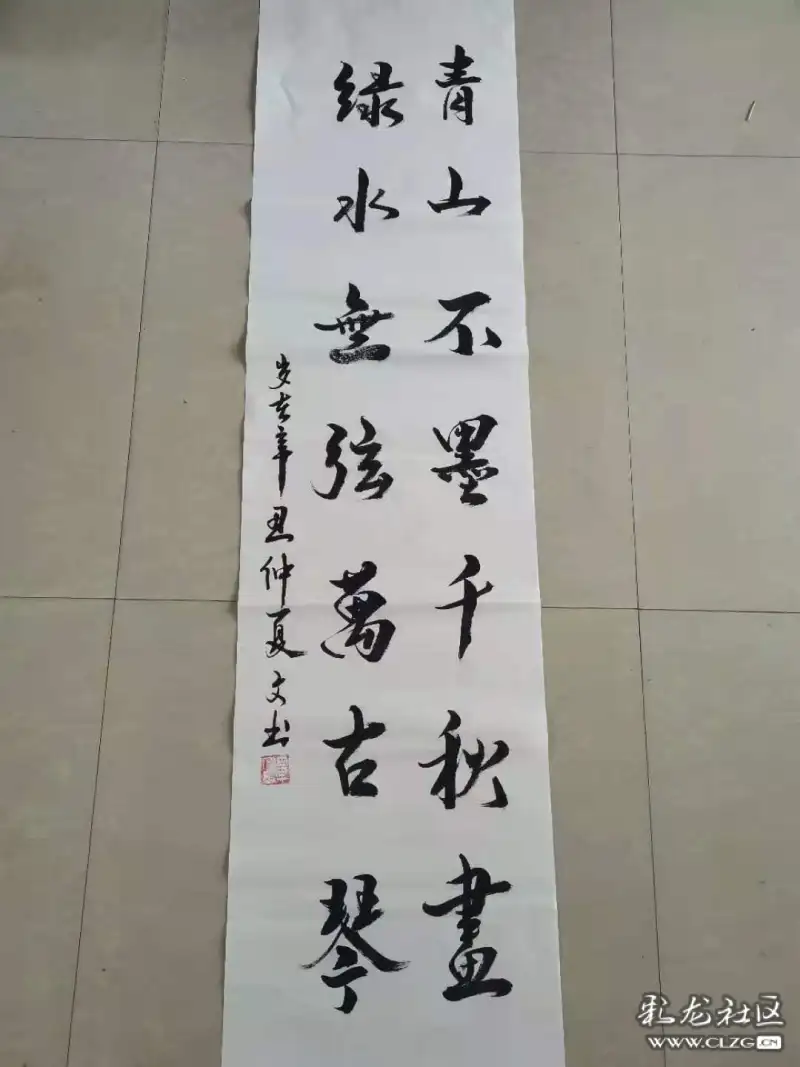 青山不墨千秋畫
绿水無弦萬古琴
岁在辛丑仲夏文书
彩龙社区
WWW.CLZG.CN